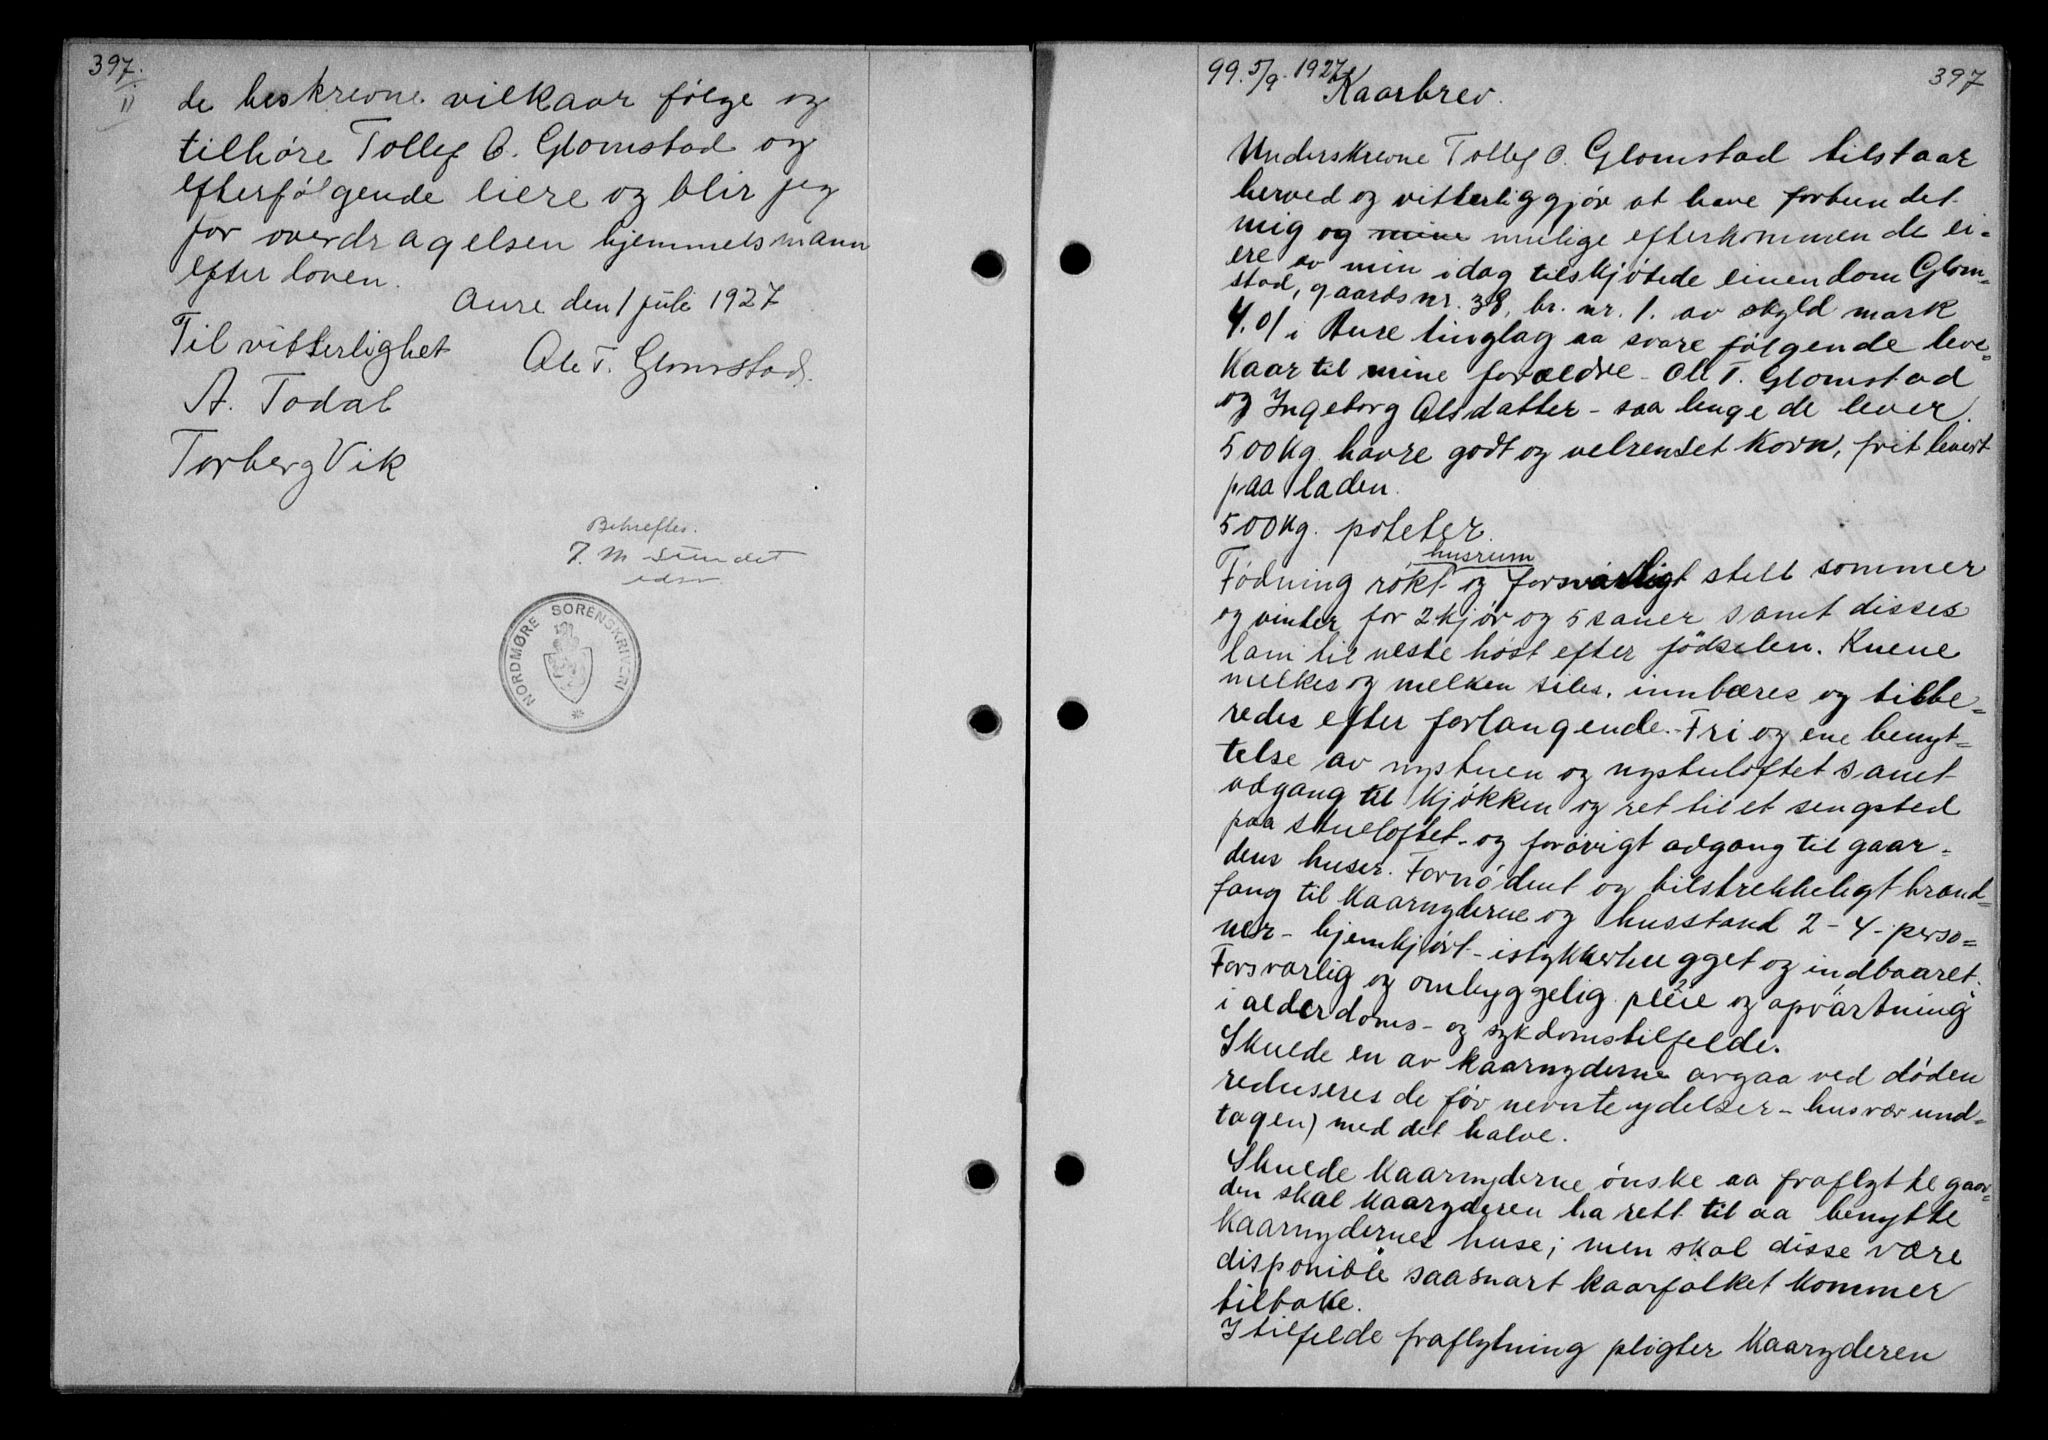 397.
II
de beskrevne vilkaar følge og
tilhøre Tollef O. Glomstad og
efterfølgende eiere og blir jeg
for overdragelsen hjemmelsmann
efter loven.
Aure den 1 juli 1927
Til vitterlighet
Ole T. Glomstad.
A. Todal
Torberg Vik
Bekreftes.
J. M. Sundet
edsv
NORDMØRE SORENSKRIVERI
99. 5/9. 1927
397
Kaarbrev.
Underskrevne Tollef O. Glomstad tilstaar
herved og vitterliggjør at have forbundet
mig og mine mulige efterkommende ei=
ere av min idag tilskjøtede eiendom Glom=
stad, gaardsnr. 38, br. nr. 1. av skyld mark
4.01 i Aure tinglag aa svare følgende leve=
kaar til mine forældre - Ole T. Glomstad
og Ingeborg Olsdatter - saa lenge de lever.
500 kg. havre godt og velrenset korn, frit levert
paa laden.
500 kg. poteter.
husrum
Fødning røkt og forsvarligt stell sommer
og vinter for 2 kjør og 5 sauer samt disses
lam til neste høst efter fødselen. Kuene
melkes og melken siles, innbæres og tilbe=
redes efter forlangende. - Fri og ene benyt=
telse av nystuen og nystuloftet samt
adgang til kjøkken og ret til et sengsted
paa stueloftet - og forøvrigt adgang til gaar=
dens huser. Fornødent og tilstrekkeligt brænd=
fang til kaarnyderne og husstand 2 - 4 - perso=
ner - hjemkjørt - istykkerhugget og indbaaret.
Forsvarlig og omhyggelig pleie og opvartning
i alderdoms - og sykdomstilfelde.
Skulde en av kaarnyderne avgaa ved døden
reduseres de før nevnte ydelser - husvær und=
tagen) med det halve.
Skulde kaarnyderne ønske aa fraflytte gaar=
den skal kaaryderen ha rett til aa benytte
kaarnydernes huse; men skal disse være
disponible saasnart kaarfolket kommer
tilbake.
I tilfelde fraflytning pligter kaaryderen